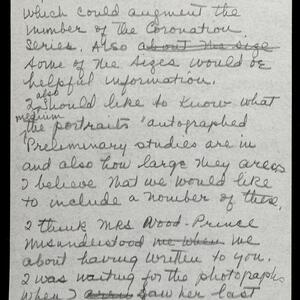 which could augment the
number of the Coronation
Series. Also about the size
some of the sizes would be
helpful information.
also
I should like to know what
medium
the portraits 'autographed
Preliminary studies are in
and also how large they are as
I believe that we would like
to include a number of these.
I think Mrs Wood-Prince
misunderstood me when me
about having written to you.
I was waiting for the photographs
when I saw her last